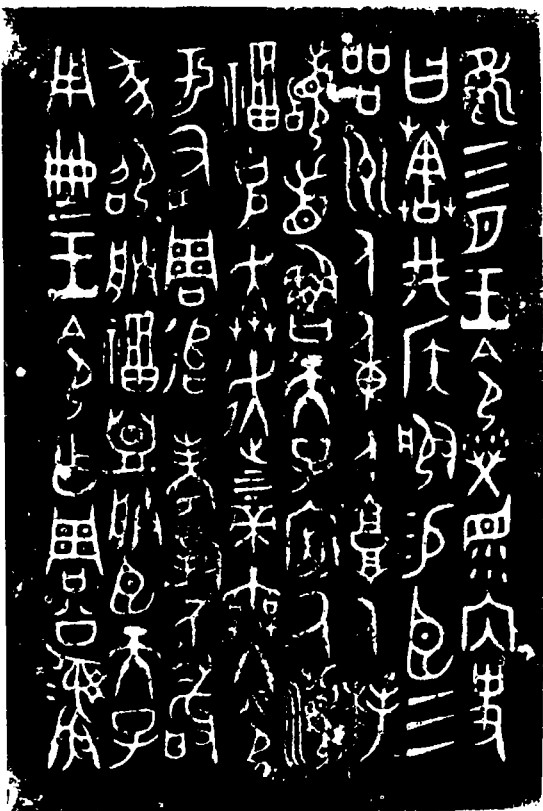 隹三月王令榮眔內史
曰𦸗井𥎦服易臣三
品州人重人庸人拜
稽首魯天子𢓊厥瀕
福克奔走上下帝無終令
于有周追考對不敢
墜邵朕福盟朕臣天子
用典王令乍周公彝